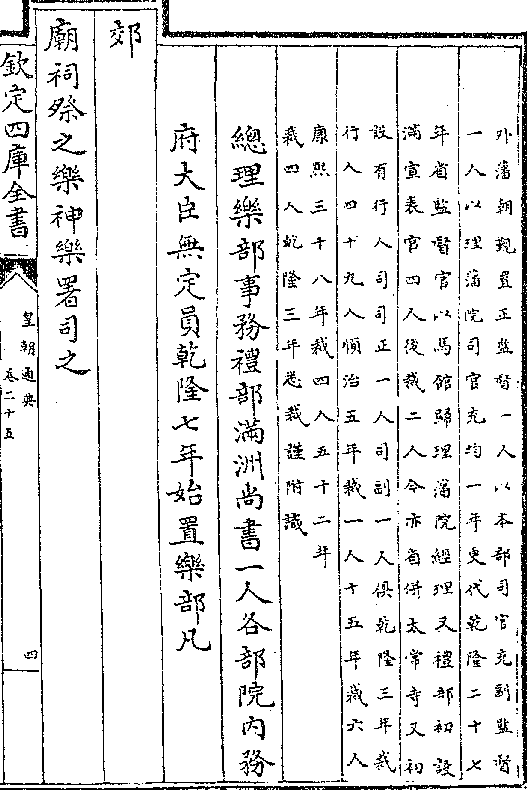 外藩朝覲置正監督一人以本部司官充副監督
一人以理藩院司官充均一年更代乾隆二十七
年省監督官以馬館歸理藩院經理又禮部初設
滿宣表官四人後裁二人今亦省併太常寺又初
設有行人司司正一人司副一人俱乾隆三年裁
行人四十九人順治五年裁一人十五年裁六人
康熙三十八年裁四人五十二年
裁四人乾隆三年悉裁謹附識
總理樂部事務禮部滿洲尚書一人各部院內務
府大臣無定員乾隆七年始置樂部凡
郊
廟祠祭之樂神樂署司之
欽定四庫全書
皇朝通典
卷二十五
四